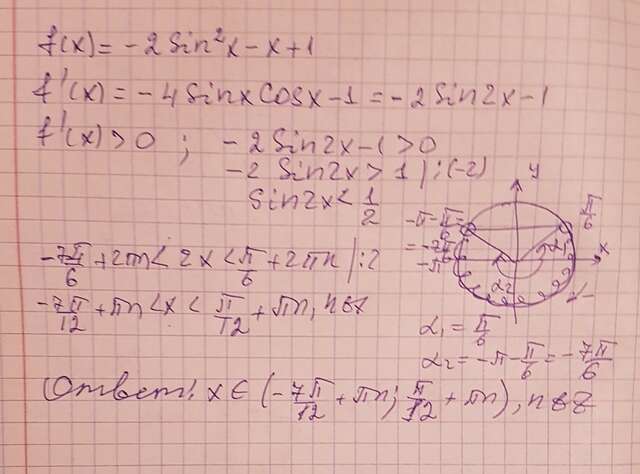 f(x) = -2 sin²x - x + 1
f'(x) = -4 sinx cosx - 1 = -2 sin2x - 1
f'(x) > 0 ; -2 sin2x - 1 > 0
-2 sin2x > 1 | : (-2)
sin2x < 1/2
y
π/6
-π - π/6 =
= -7π/6
-π
x
α₂
-7π/6 + 2πn < 2x < π/6 + 2πn | : 2
-7π/12 + πn < x < π/12 + πn, n∈Z
α₁ = π/6
α₂ = -π - π/6 = -7π/6
Ответ: x ∈ (-7π/12 + πn; π/12 + πn), n∈Z